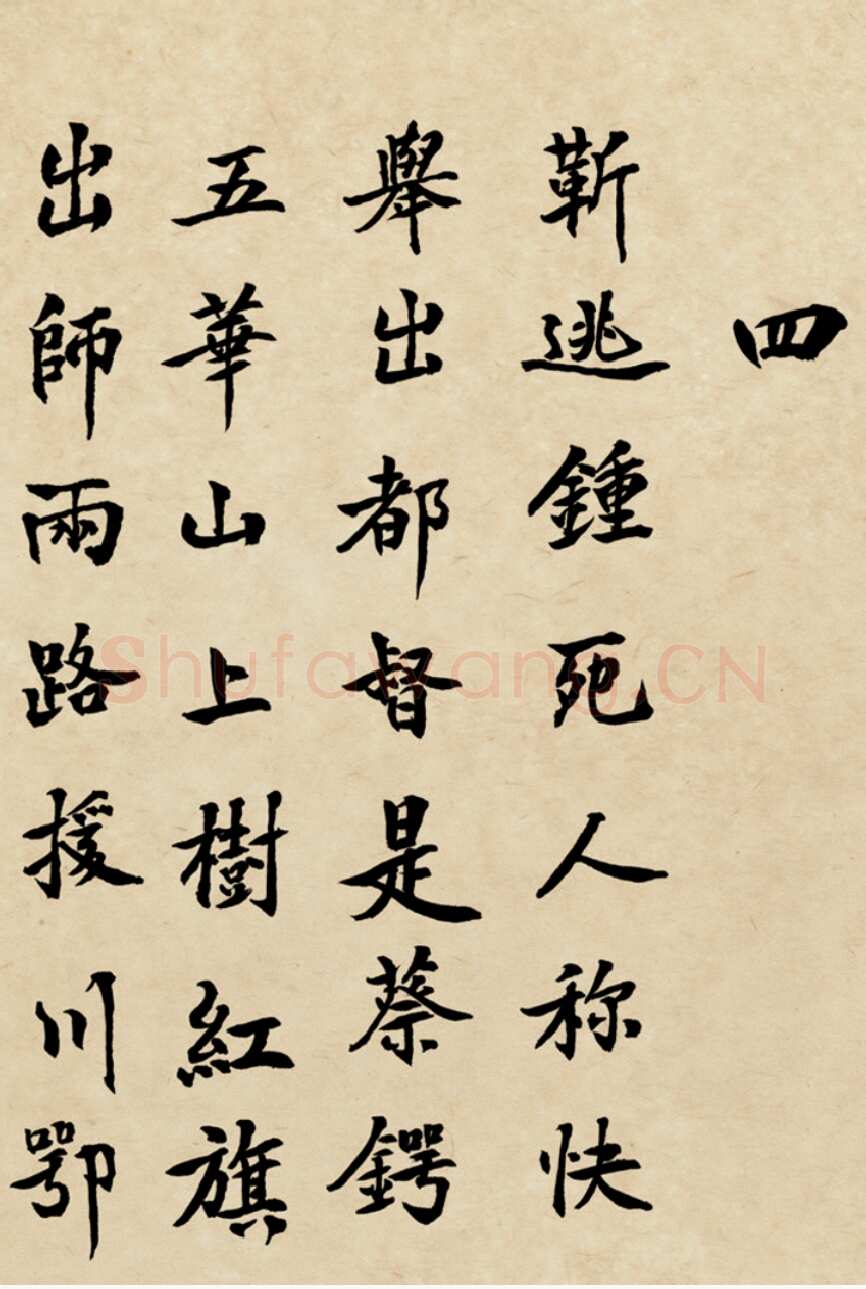 四
靳逃鍾死人称快
舉出都督是蔡鍔
五華山上樹紅旗
出師兩路援川鄂
Shufawang.CN